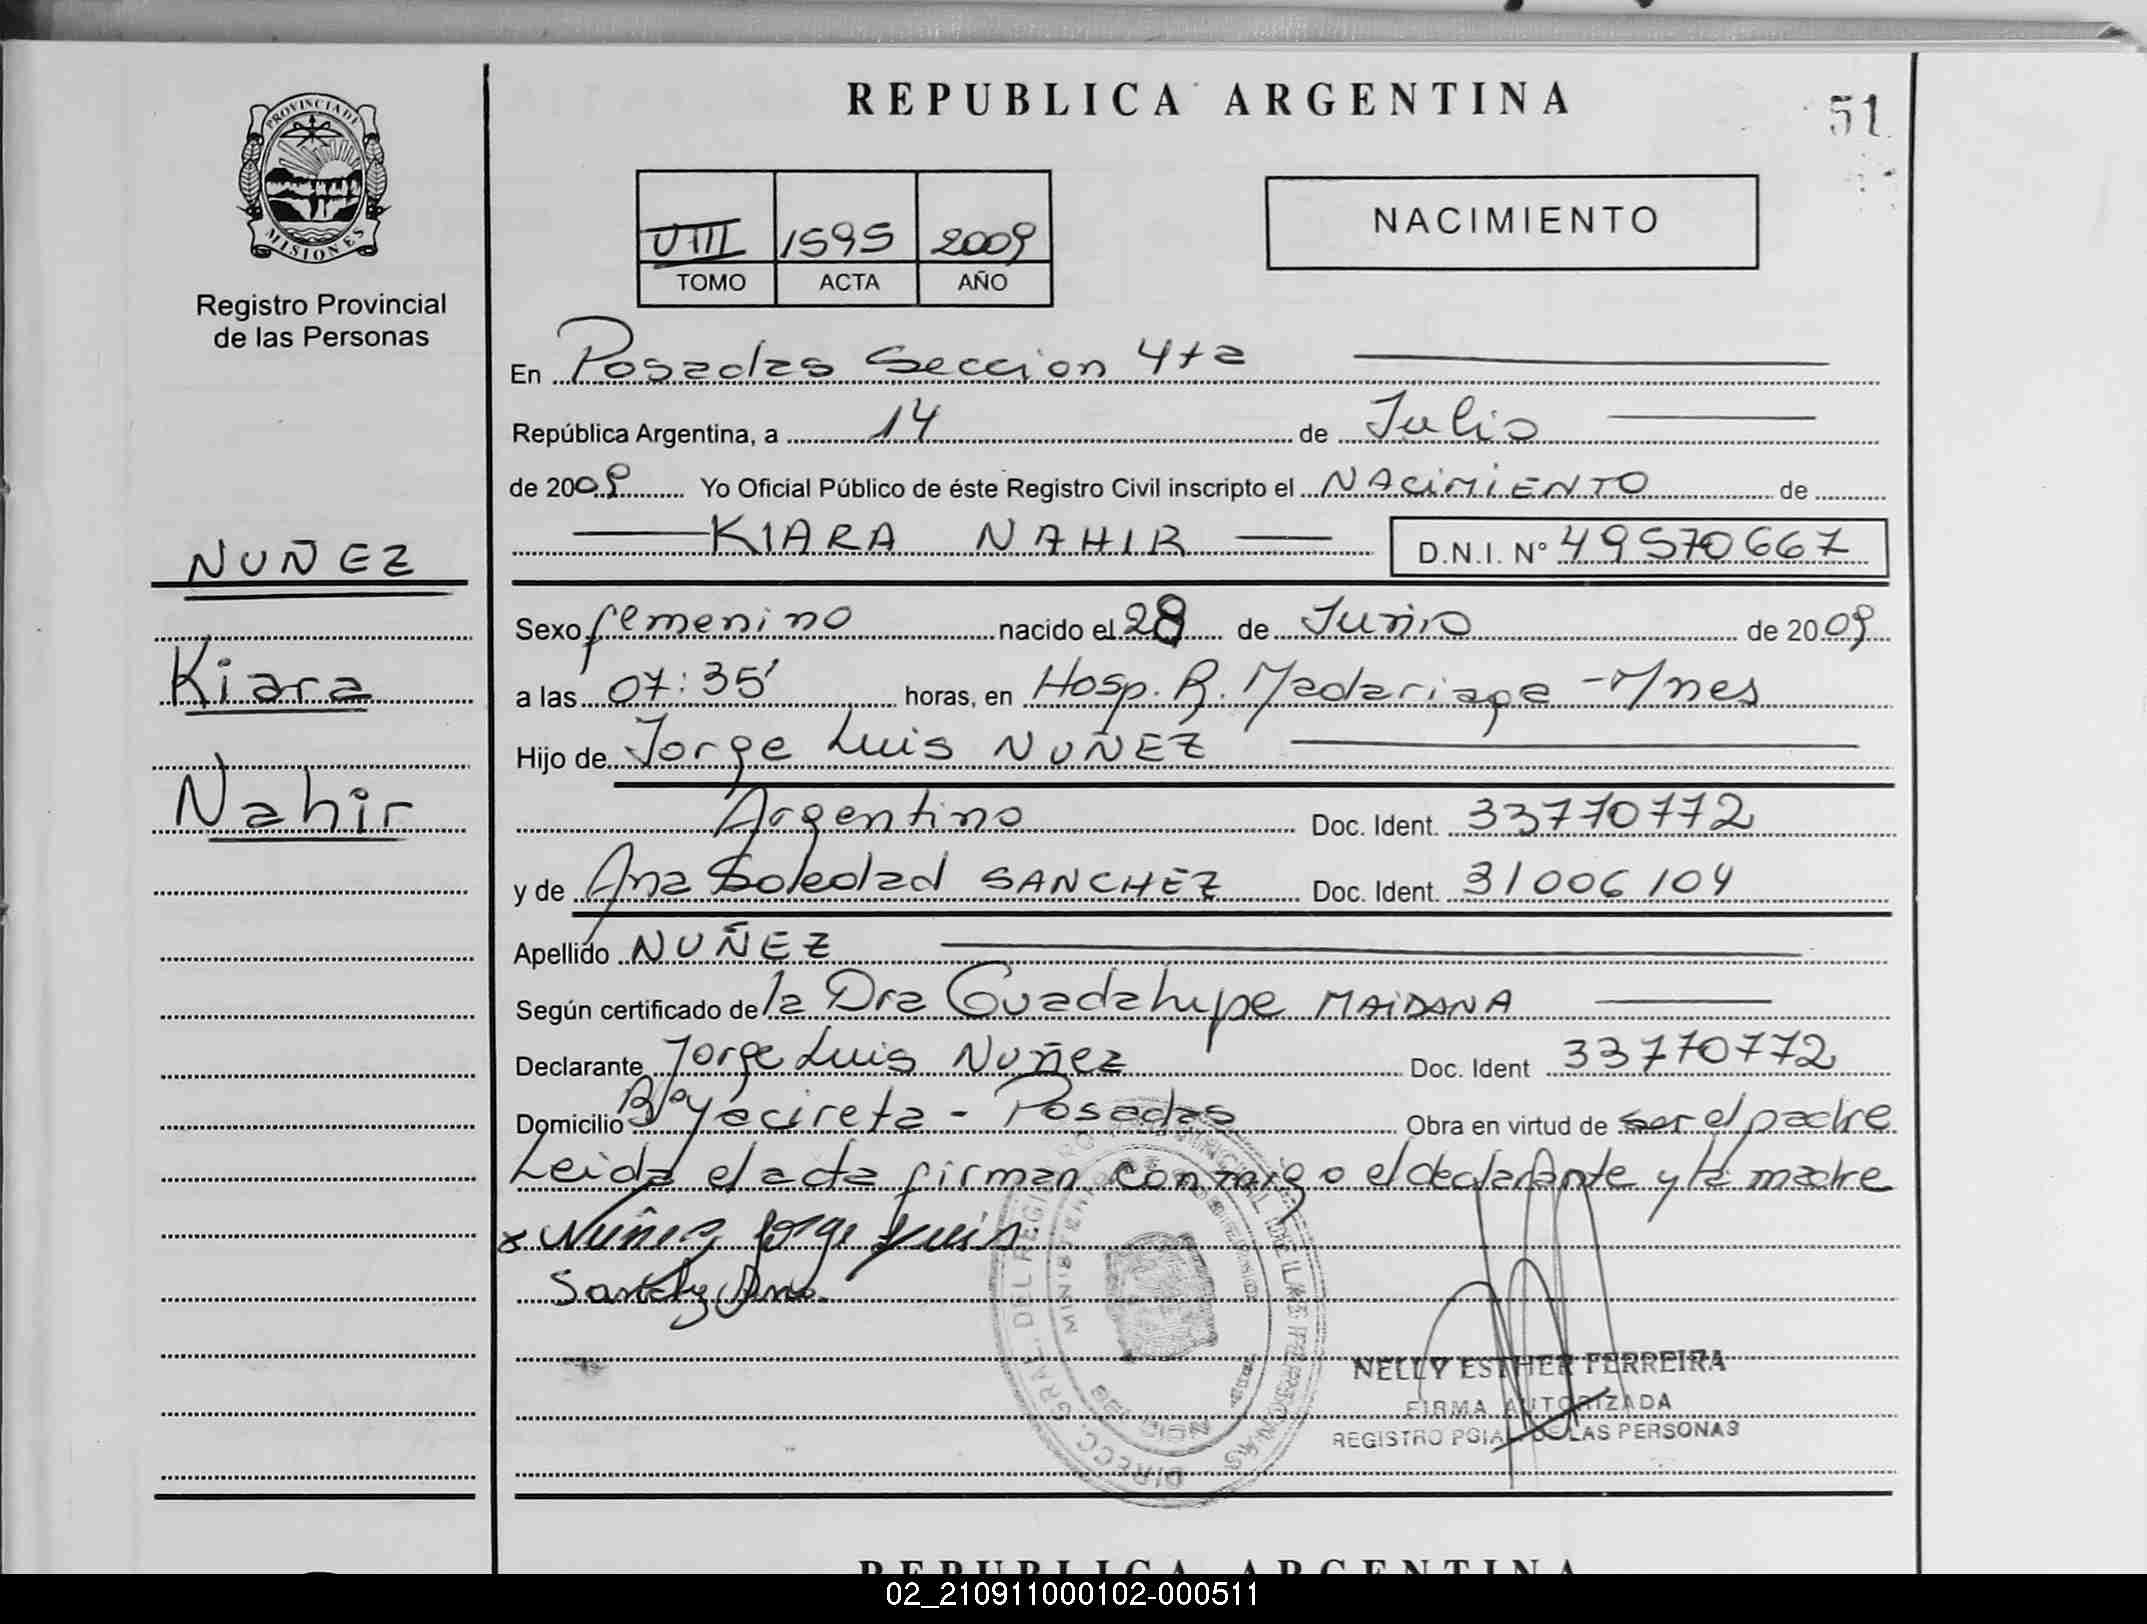 REPUBLICA ARGENTINA
51
PROVINCIA DE
MISIONES
Registro Provincial
de las Personas
VIII 1595 2009
TOMO ACTA AÑO
NACIMIENTO
En Posadas Seccion 4ta
República Argentina, a 14 de Julio
de 2009 Yo Oficial Público de éste Registro Civil inscripto el NACIMIENTO de
KIARA NAHIR D.N.I. Nº 49570667
NUÑEZ
Kiara
Nahir
Sexo femenino nacido el 28 de Junio de 2009
a las 07:35' horas, en Hosp. R. Madariaga - Mnes
Hijo de Jorge Luis NUÑEZ
Argentino Doc. Ident. 33770772
y de Ana Soledad SANCHEZ Doc. Ident. 31006104
Apellido NUÑEZ
Según certificado de la Dra Guadalupe MAIDANA
Declarante Jorge Luis Nuñez Doc. Ident 33770772
Domicilio Bº Yacireta - Posadas Obra en virtud de ser el padre
Leida el acta firman conmigo el declarante y la madre
x Nuñez Jorge Luis
Ana
NELLY ESTHER FERREIRA
FIRMA AUTORIZADA
REGISTRO PCIAL DE LAS PERSONAS
REPUBLICA ARGENTINA
02_210911000102-000511